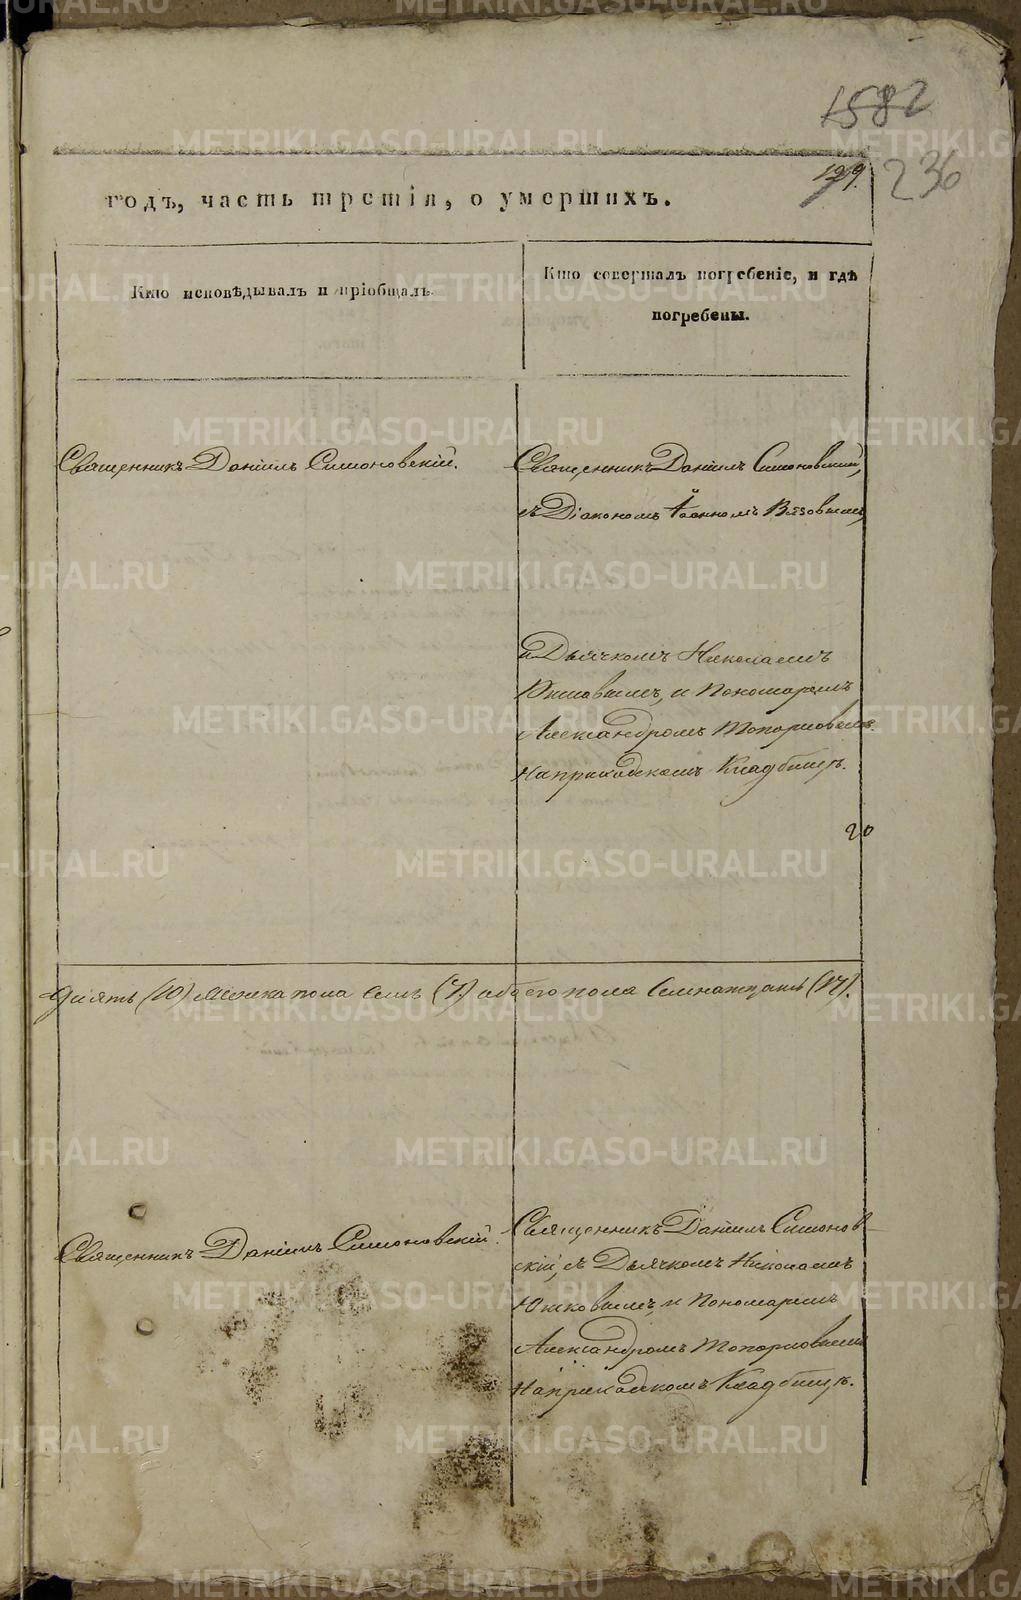 1582
129.
236
годъ, часть третія, о умершихъ.
Кто исповѣдывалъ и пріобщалъ.
Кто совершалъ погребеніе, и гдѣ
погребены.
Священникъ Даніилъ Симоновскій.
Священникъ Даніилъ Симоновскій,
съ Діакономъ Іоанномъ Вязовымъ,
и Дьячкомъ Николаемъ
Юшковымъ, и Пономаремъ
Александромъ Топорковымъ.
На приходскомъ Кладбищѣ.
20
десять (10) женска пола семь (7.) обоего пола семнатцать (17).
Священникъ Даніилъ Симоновскій.
Священникъ Даніилъ Симонов-
скій, съ Дьячкомъ Николаемъ
Юшковымъ, и Пономаремъ
Александромъ Топорковымъ
На приходскомъ Кладбищѣ.
METRIKI.GASO-URAL.RU